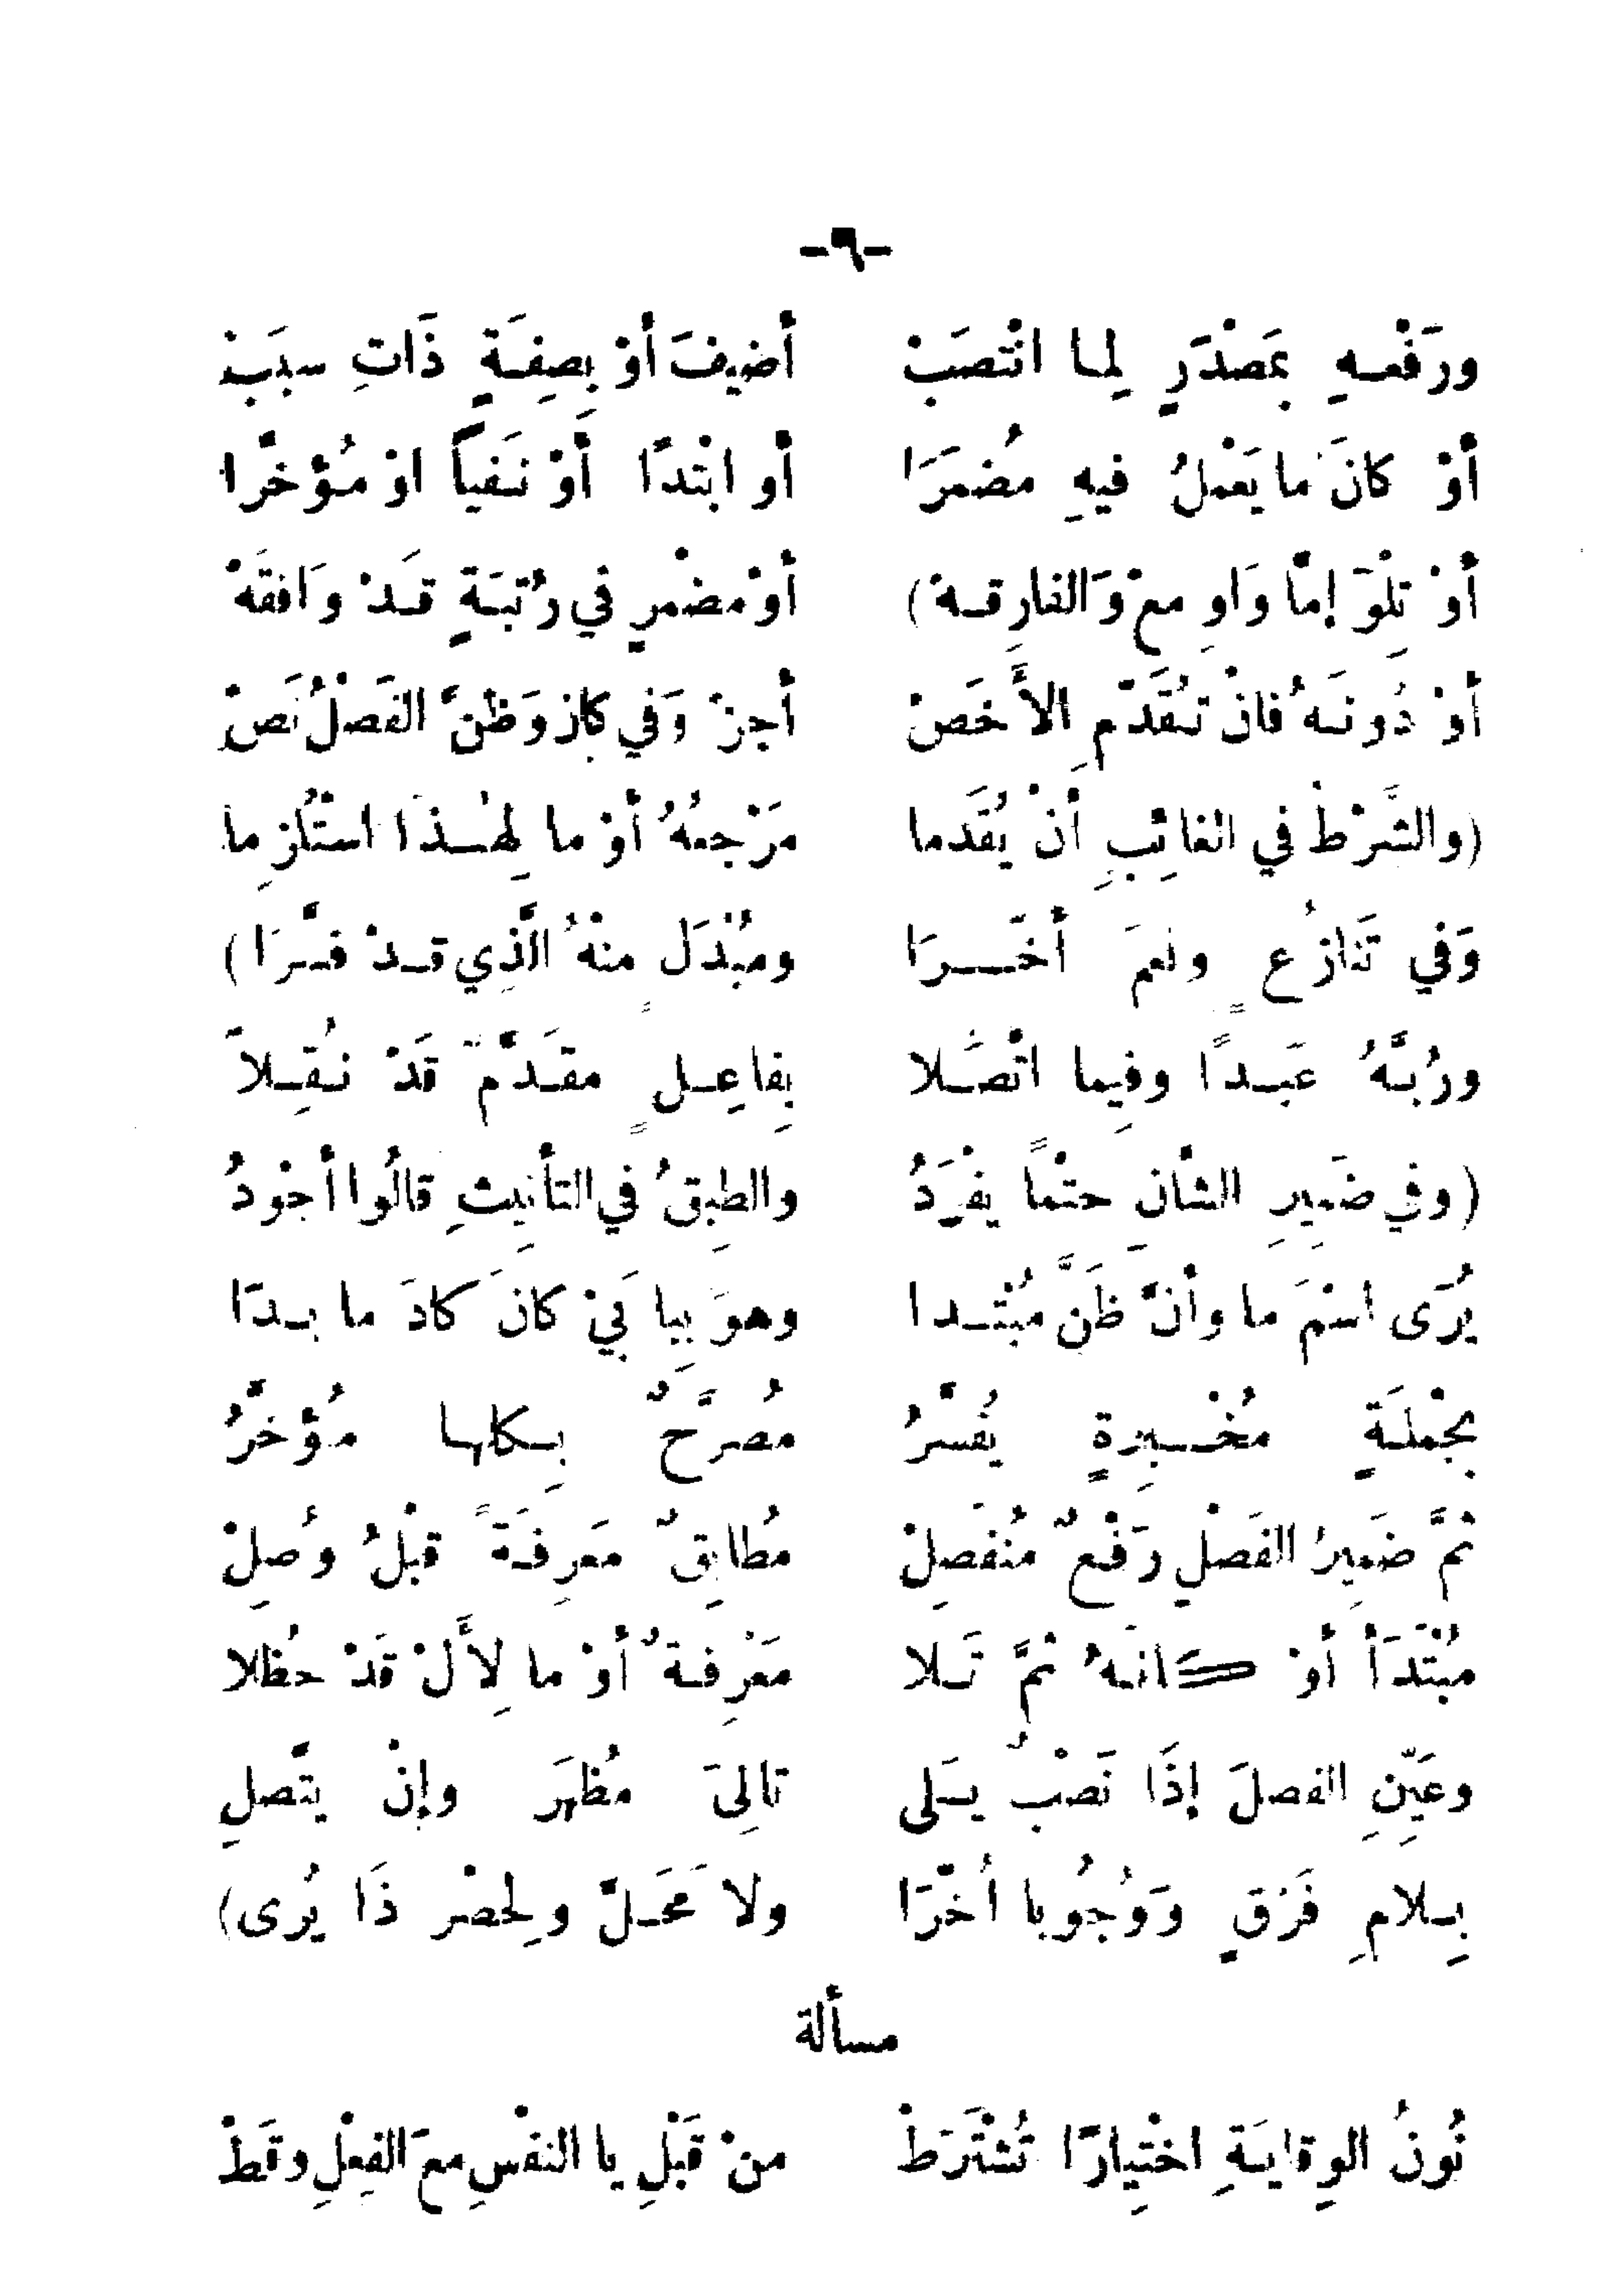 -٦-
ورَفْعـهِ بمَصْدَرٍ لِما انْتصَبْ أضيفَ أوْ بِصِفَةٍ ذَاتِ سببْ
أوْ كانَ ما يَعْملُ فيهِ مُضمَرَا أو ابْتدًا أوْ نَفياً اوْ مُؤخرَّا
أوْ تِلْوَ إمّا وَاوِ معْ وَالفارِقـهْ) أوْ مضْمرٍ في رُتبَةٍ قَدْ وَافقَهْ
أوْ دُونَهُ فانْ تُقَدّمِ الأَخَصْ أجزْ وَفي كانَ وَظنَّ الفَصْلُ نَصْ
(والشَّرْطُ في الغائِبِ أنْ يُقَدما مَرْجعُهُ أوْ ما لِهٰـذَا استُلزِما
وَفي تَنازُعٍ ونعمَ أخّـرَا ومُبْدَلٍ منْهُ الَّذِي قـدْ فسَّرَا)
ورُبَّهُ عَبـدًا وفِيما اتْصَـلا بِفاعِـلٍ مقَـدَّمٍ قَدْ نُقِـلاَ
(وفي ضَمِيرِ الشأنِ حتْماً يفْرَدُ والطِبقُ في التأنِيثِ قالُوا أجْودُ
يُرَى اسْمَ ما وأنّ ظَنَّ مُبْتـدا وهوَ بِبا بَيْ كانَ كادَ ما بـدَا
بجْملَةٍ مُخْـبِرةٍ يُفسّرُ مُصرَّحٌ بِـكلها مُؤخرَّ
ثمَّ ضَمِيرُ الفَصْلِ رَفْعٌ مُنفَصِلْ مُطابِقٌ مَعرِفَةً قبْلُ وُصِلْ
مُبْتَدَأ أوْ كـانَـهُ ثمَّ تَـلا مَعْرِفـةٌ أوْ ما لِأَلْ قَدْ حُظلا
وعَيِّنِ الفصلَ إذَا نَصْبٌ يَـلى تالِىَ مُظهَر وإنْ يتَّصلِ
بِـلامِ فَرْقٍ وَوُجُوبا أُخرَّا ولا مَحَـلّ ولِحصْر ذَا يُرى)
مسألة
نُونُ الوِقايَـةِ اختِيارًا تُشْتَرَطْ منْ قَبْلِ يا النفْسِ معَ الفِعْلِ وقَطْ